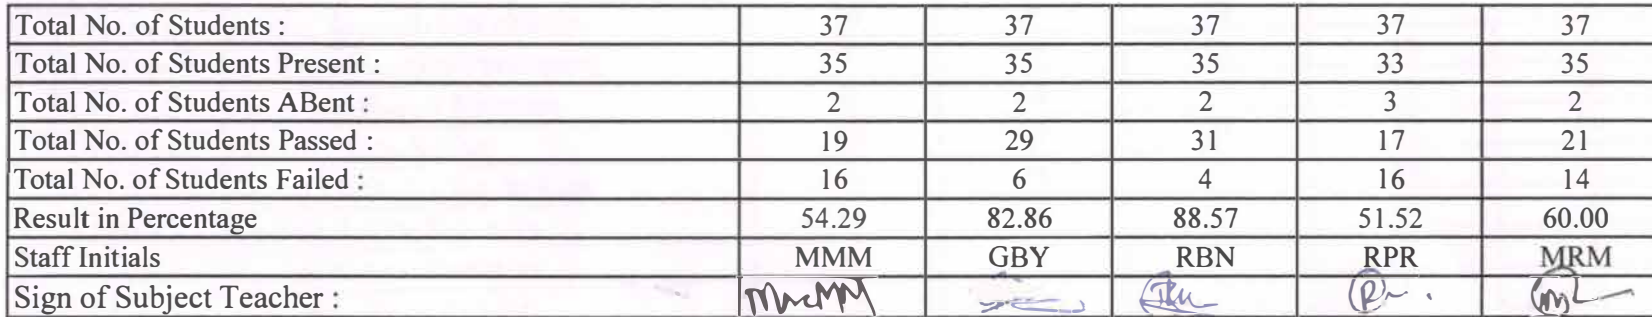 Total No. of Students : 37 37 37 37 37
Total No. of Students Present : 35 35 35 33 35
Total No. of Students ABent : 2 2 2 3 2
Total No. of Students Passed : 19 29 31 17 21
Total No. of Students Failed : 16 6 4 16 14
Result in Percentage 54.29 82.86 88.57 51.52 60.00
Staff Initials MMM GBY RBN RPR MRM
Sign of Subject Teacher :